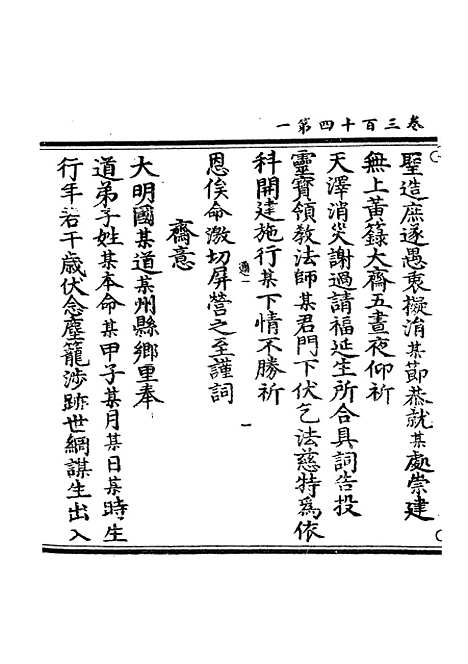 卷三百十四第一
聖造庶遂愚衷擬消某節恭就某處崇建
無上黃籙大齋五晝夜仰祈
天澤消灾謝過請福延生所合具詞告投
靈寶領教法師某君門下伏乞法慈特為依
科開建施行某下情不勝祈
通一
一
恩俟命激切屏營之至謹詞
齋意
大明國某道某州縣鄉里奉
道弟子姓某本命某甲子某月某日某時生
行年若干歲伏念塵籠涉跡世網謀生出入